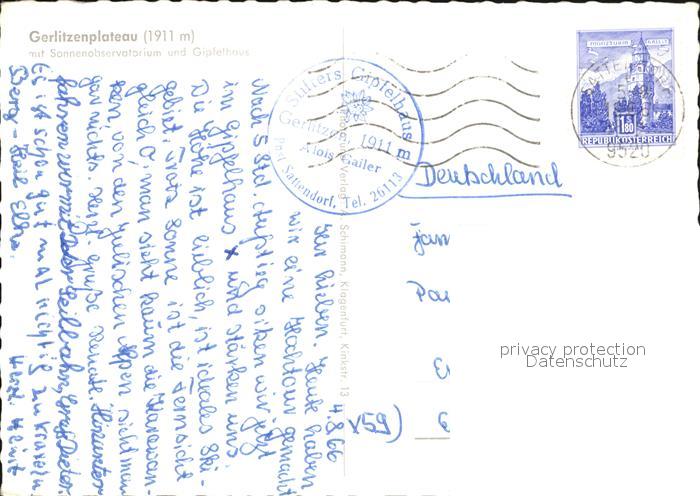 Gerlitzenplateau (1911 m)
mit Sonnenobservatorium und Gipfelhaus
Stifters Gipfelhaus
Gerlitzen 1911 m
Alois Gailer
Post Sattendorf, Tel. 26113
MÜNZTURM HALL
1.80
REPUBLIK ÖSTERREICH
9520
Verlag Schimann, Klagenfurt, Kinkstr. 13
Deutschland
4.8.66
Ihr Lieben. Heute haben
wir eine Hochtour gemacht
Nach 5 Std. Aufstieg sitzen wir jetzt
im Gipfelhaus und stärken uns.
Die Höhe ist lieblich, ist ideales Ski-
gebiet. Trotz Sonne ist die Fernsicht
gleich 0, man sieht kaum die Karawan-
ken von den Julischen Alpen sieht man
gar nichts. Herzl. Grüße Renate. Hinunter
fahren wir mit der Seilbahn, Gruß Dieter.
Es ist schön gut mal richtig zu kraxeln
Berg-Heil Elke. Herzl. Heinz
v59)
privacy protection
Datenschutz